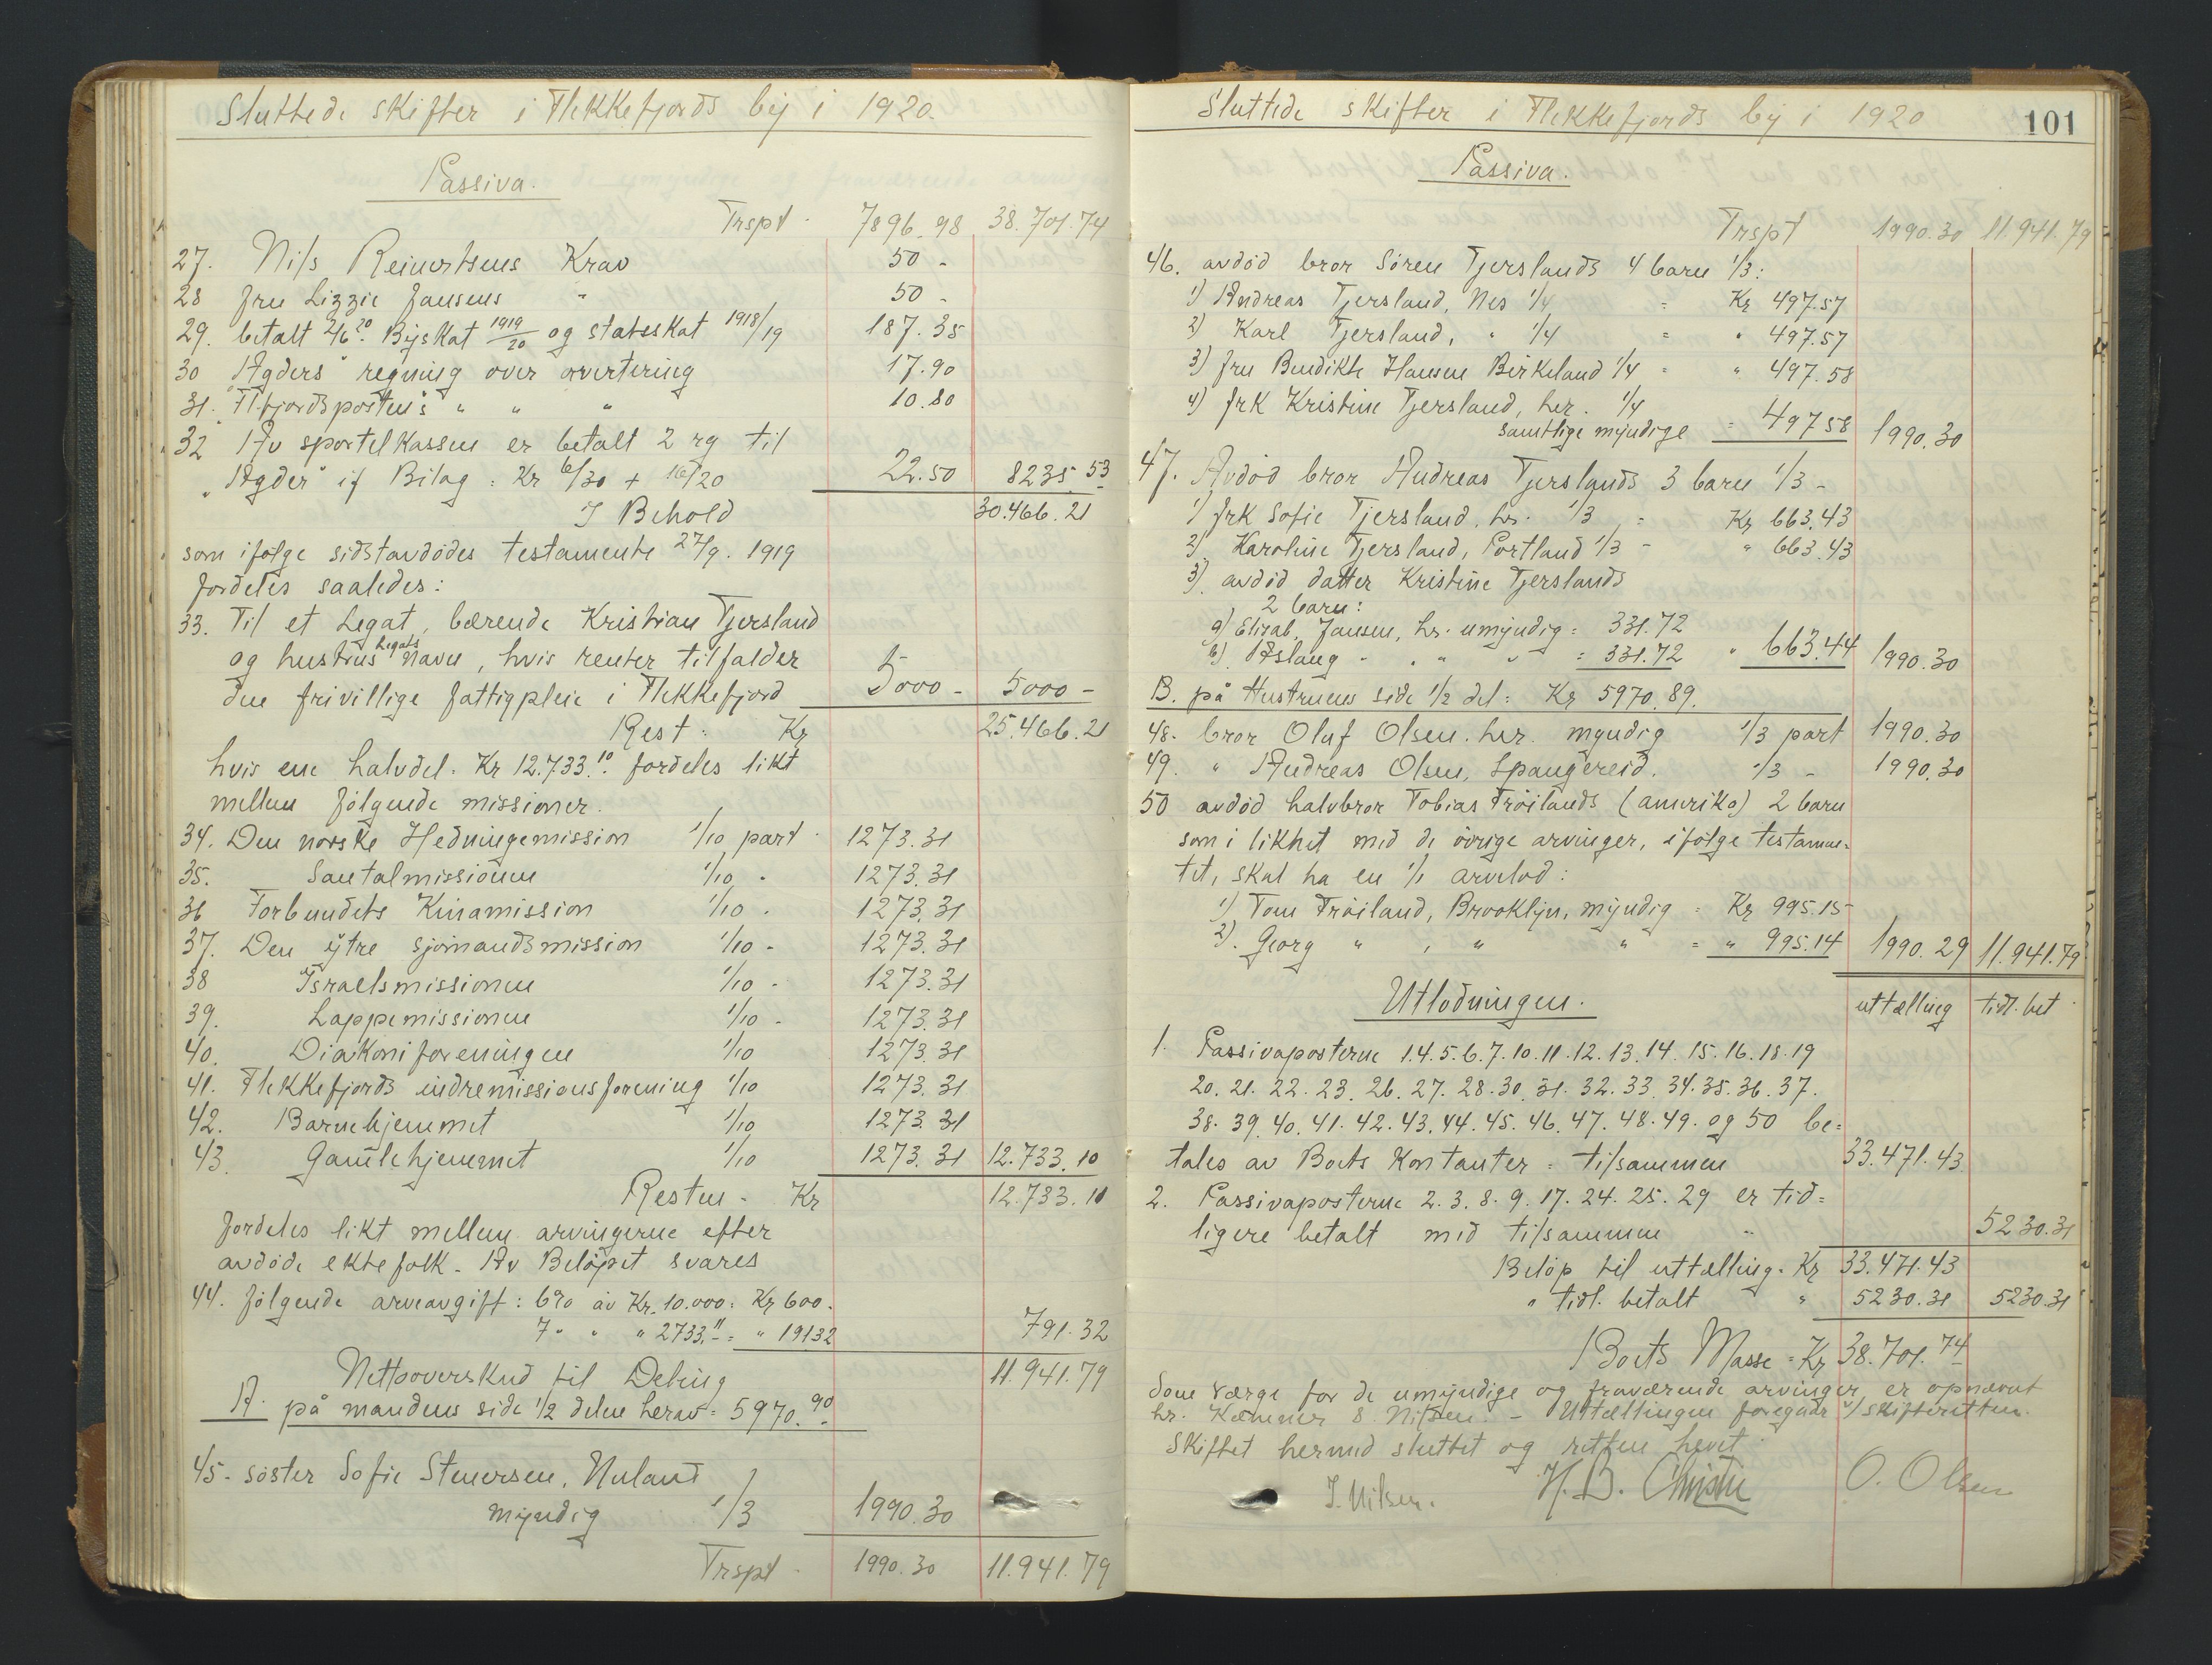 Sluttede skifter i Flekkefjords by i 1920.
Passiva.
Trspt. 7896.98 38.701.74
27. Nils Reinertsens Krav 50 -
28 fru Lizzie Jansens " 50 -
29. betalt 2/6 20. Byskat 1919/20 og statsskat 1918/19 187.35
30 "Agders" regning over avertering 17.90
31. "Fl.fjordsposten"s " " " 10.80
32 Av sportelkassen er betalt 2 rg til
"Agder" if Bilag: Kr 6/30 + 16/20 22.50 8235.53
I Behold 30.466.21
som ifølge sidstavdødes testamente 27/9. 1919
fordeles saaledes:
33. Til et Legat, bærende Kristian Tjersland
og hustrus legats navn, hvis renter tilfalder
den frivillige fattigpleie i Flekkefjord 5000 - 5000 -
Rest: Kr 25.466.21
hvis ene halvdel. Kr 12.733.10 fordeles likt
mellem følgende missioner.
34. Den norske Hedningemission 1/10 part. 1273.31
35. Santalmissionen 1/10 " 1273.31
36 Forbundets Kinamission 1/10 " 1273.31
37. Den ytre sjømandsmission 1/10 - 1273.31
38 Israelsmissionen 1/10 - 1273.31
39. Lappemissionen 1/10 - 1273.31
40. Diakoniforeningen 1/10 1273.31
41. Flekkefjords indremissionsforening 1/10 1273.31
42. Barnehjemmet 1/10 1273.31
43. Gamlehjemmet 1/10 1273.31 12.733.10
Resten - Kr 12.733.11
fordeles likt mellem arvingerne efter
avdøde ektefolk. Av Beløpet svares
44. følgende arveavgift: 6% av Kr. 10.000: Kr 600.
7 " " " 2733.11 = " 191.32 791.32
Nettooverskud til Deling 11.941.79
A. på mandens side 1/2 delen herav = 5970.90
45. søster Sofie Stenersen, Nuland
myndig 1/3 1990.30
Trspt. 1990.30 11.941.79
Sluttede skifter i Flekkefjords by i 1920
101
Passiva.
Trspt 1990.30 11.941.79
46. avdød bror Søren Tjerslands 4 barn 1/3:
1) Andreas Tjersland, Nes 1/4 = Kr 497.57
2) Karl Tjersland, " 1/4 = " 497.57
3) fru Bendikte Hansen Birkeland 1/4 = " 497.58
4) frk Kristine Tjersland, her. 1/4
samtlige myndige = 497 58 1990.30
47. Avdød bror Andreas Tjerslands 3 barn 1/3 -
1) frk Sofie Tjersland, hr. 1/3 = Kr 663.43
2) Karoline Tjersland, Portland 1/3 - " 663.43
3). avdød datter Kristine Tjerslands
2 barn:
a) Elisab. Jansen, hr. umyndig = 331.72
b) Aslaug " " " " = 331.72 " 663.44 1990.30
B. på Hustruens side 1/2 del = Kr 5970.89.
48. bror Oluf Olsen. her. myndig 1/3 part 1990.30
49. " Andreas Olsen, Spangereid. 1/3 - 1990.30
50 avdød halvbror Tobias Frøilands (amerika) 2 barn
som i likhet med de øvrige arvinger, ifølge testamen-
tet, skal ha en 1/1 arvelod:
1) Tom Frøiland, Brooklyn, myndig = Kr 995.15
2). Georg " , " " = " 995.14 1990.29 11.941.79
Utlodningen. uttælling tidl. bet.
1. Passivaposterne 1.4.5.6.7.10.11.12.13.14.15.16.18.19
20.21.22.23.26.27.28.30.31.32.33.34.35.36.37.
38.39.40.41.42.43.44.45.46.47.48.49. og 50 be-
tales av Boets Kontanter = tilsammen 33.471.43
2. Passivaposterne 2.3.8.9.17.24.25.29 er tid-
ligere betalt med tilsammen " 5230.31
Beløp til uttælling. Kr 33.471.43
" tidl. betalt " 5230.31 5230.31
Boets Masse = Kr 38.701.74
Som værge for de umyndige og fraværende arvinger er opnævnt
hr. Kæmner S. Nilsen. - Uttællingen foregaar v/ skifteretten.
Skiftet hermed sluttet og retten hevet.
J. Nilsen. H.B. Christie O. Olsen